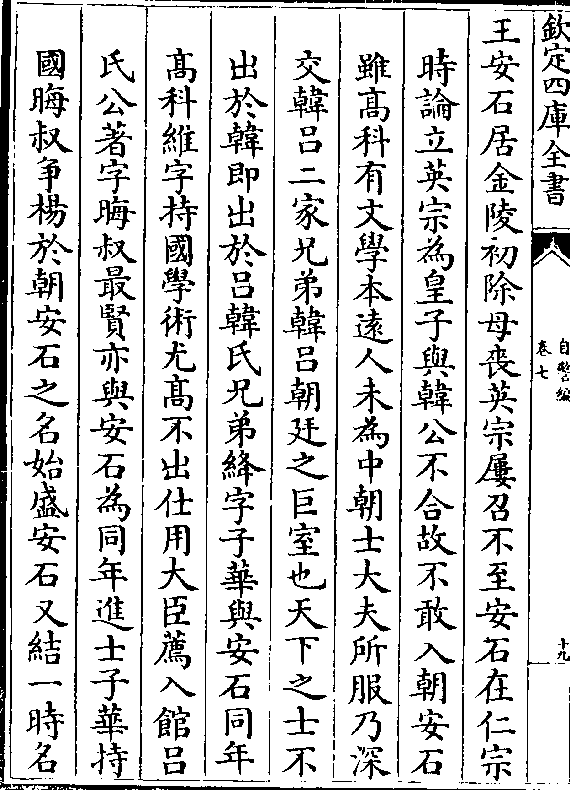 欽定四庫全書
自警編
卷七
十九
王安石居金陵初除母喪英宗屢召不至安石在仁宗
時論立英宗為皇子與韓公不合故不敢入朝安石
雖髙科有文學本遠人未為中朝士大夫所服乃深
交韓吕二家兄弟韓吕朝廷之巨室也天下之士不
出於韓即出於吕韓氏兄弟絳字子華與安石同年
髙科維字持國學術尤髙不出仕用大臣薦入館吕
氏公著字晦叔最賢亦與安石為同年進士子華持
國晦叔争楊於朝安石之名始盛安石又結一時名